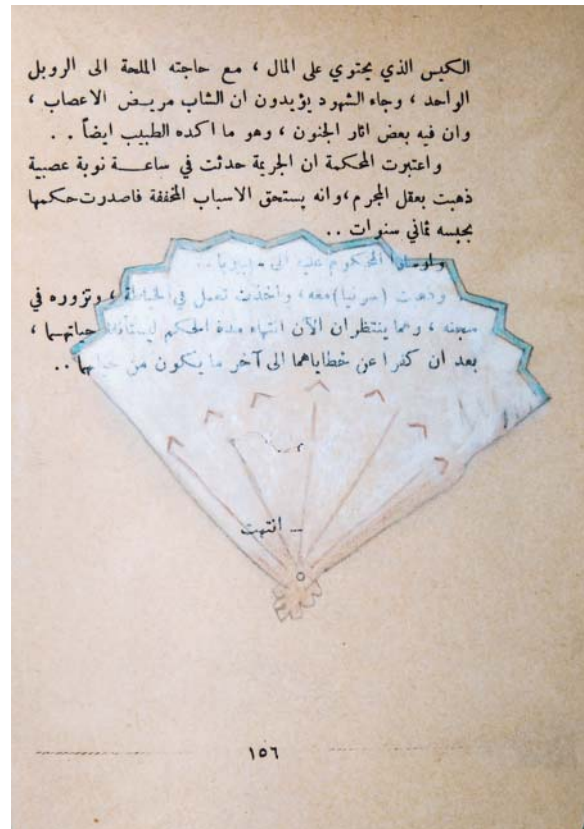 الكيس الذي يحتوي على المال ، مع حاجته الملحة الى الروبل
الواحد ، وجاء الشهود يؤيدون ان الشاب مريض الاعصاب ،
وان فيه بعض اثار الجنون ، وهو ما اكده الطبيب ايضاً . .
واعتبرت المحكمة ان الجريمة حدثت في ساعة نوبة عصبية
ذهبت بعقل المجرم ، وانه يستحق الاسباب المخففة فاصدرت حكمها
بحبسه ثماني سنوات . .
المحكوم عليه الى
وذهبت (صونيا) معه ، واخذت تعمل في الخياطة ، وتزوره في
سجنه ، وهما ينتظران الآن انتهاء مدة الحكم ليستأنفا حياتهما ،
بعد ان كفرا عن خطاياهما الى آخر ما يتكون من حياتهما . .
ـ انتهت
١٥٦